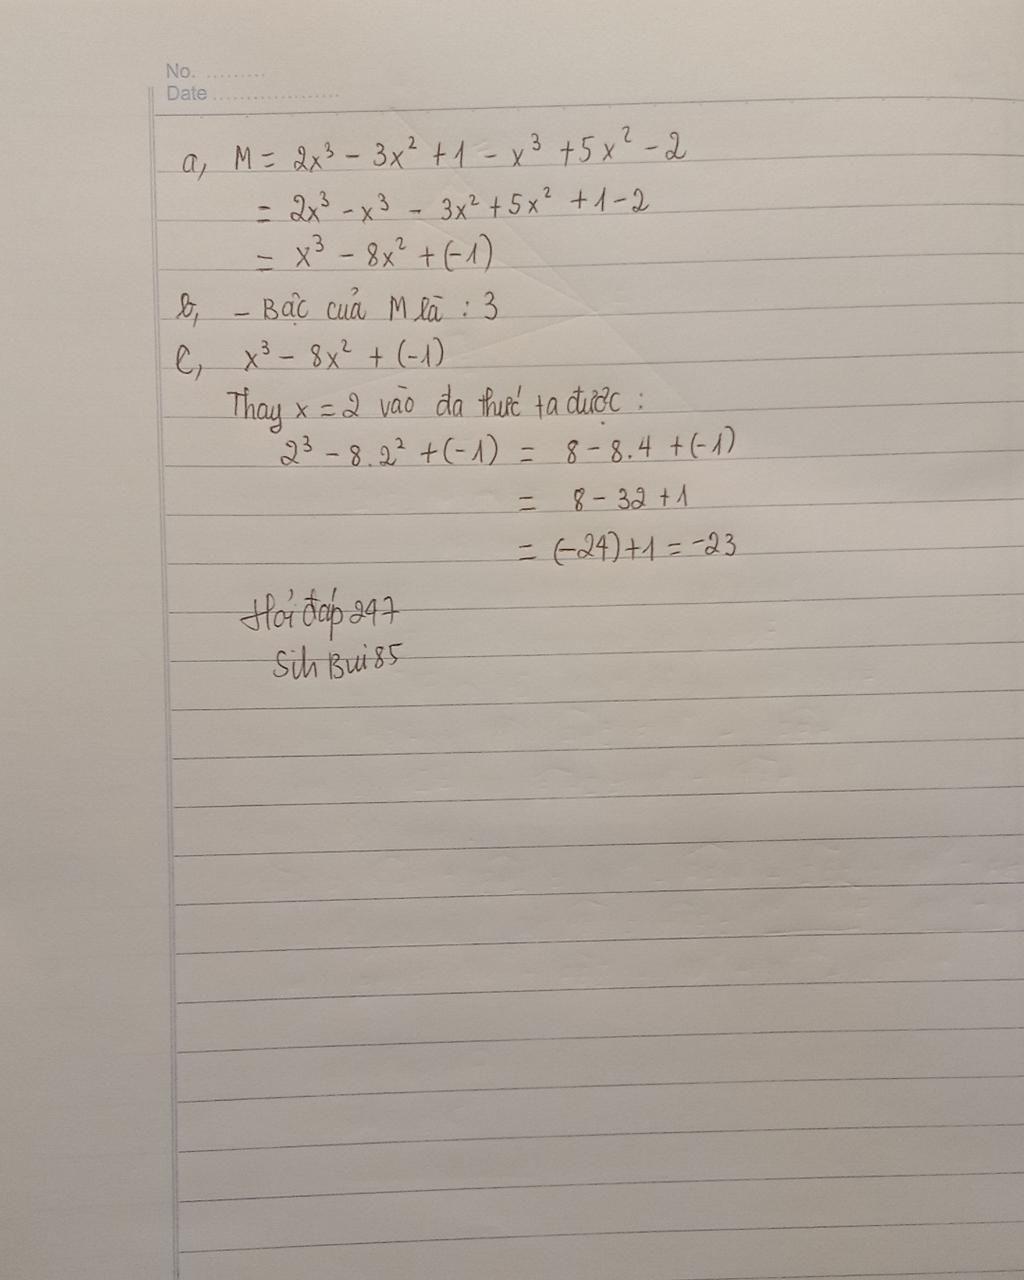 No. .........
Date ...................
a, M = 2x³ - 3x² + 1 - x³ + 5x² - 2
= 2x³ - x³ - 3x² + 5x² + 1 - 2
= x³ - 8x² + (-1)
b, - Bậc của M là : 3
c, x³ - 8x² + (-1)
Thay x = 2 vào đa thức ta được :
2³ - 8.2² + (-1) = 8 - 8.4 + (-1)
= 8 - 32 + 1
= (-24) + 1 = -23
Hỏi đáp 247
Sih Bui85